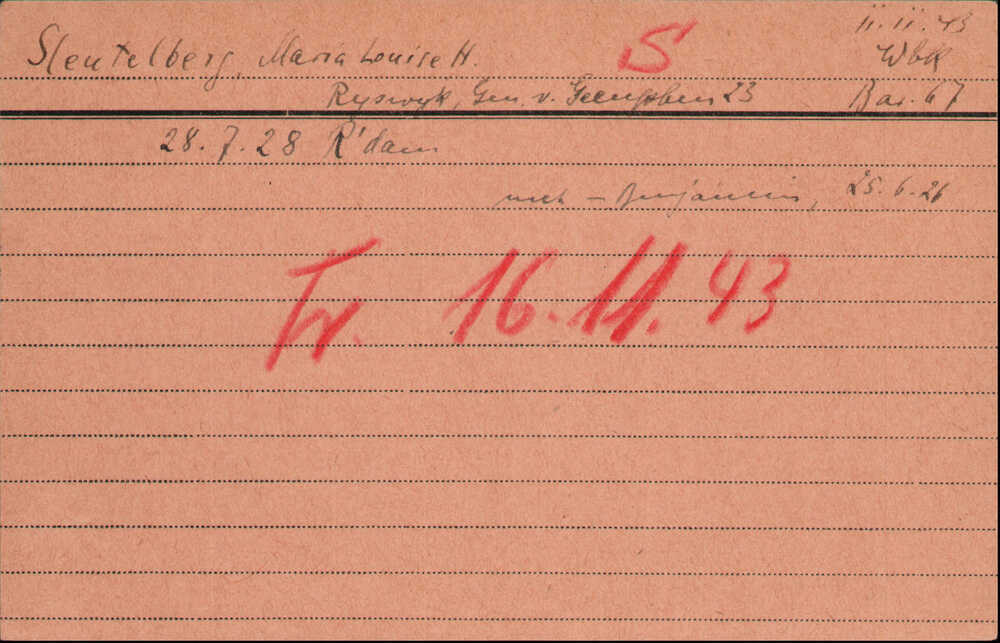 11.11.43
Sleutelberg, Maria Louise H. S WbK
Ryswyk, Gen. v. 23 Bar. 67
28.7.28 R'dam
– Benjamin, 25.6.26
Tr. 16.11.43